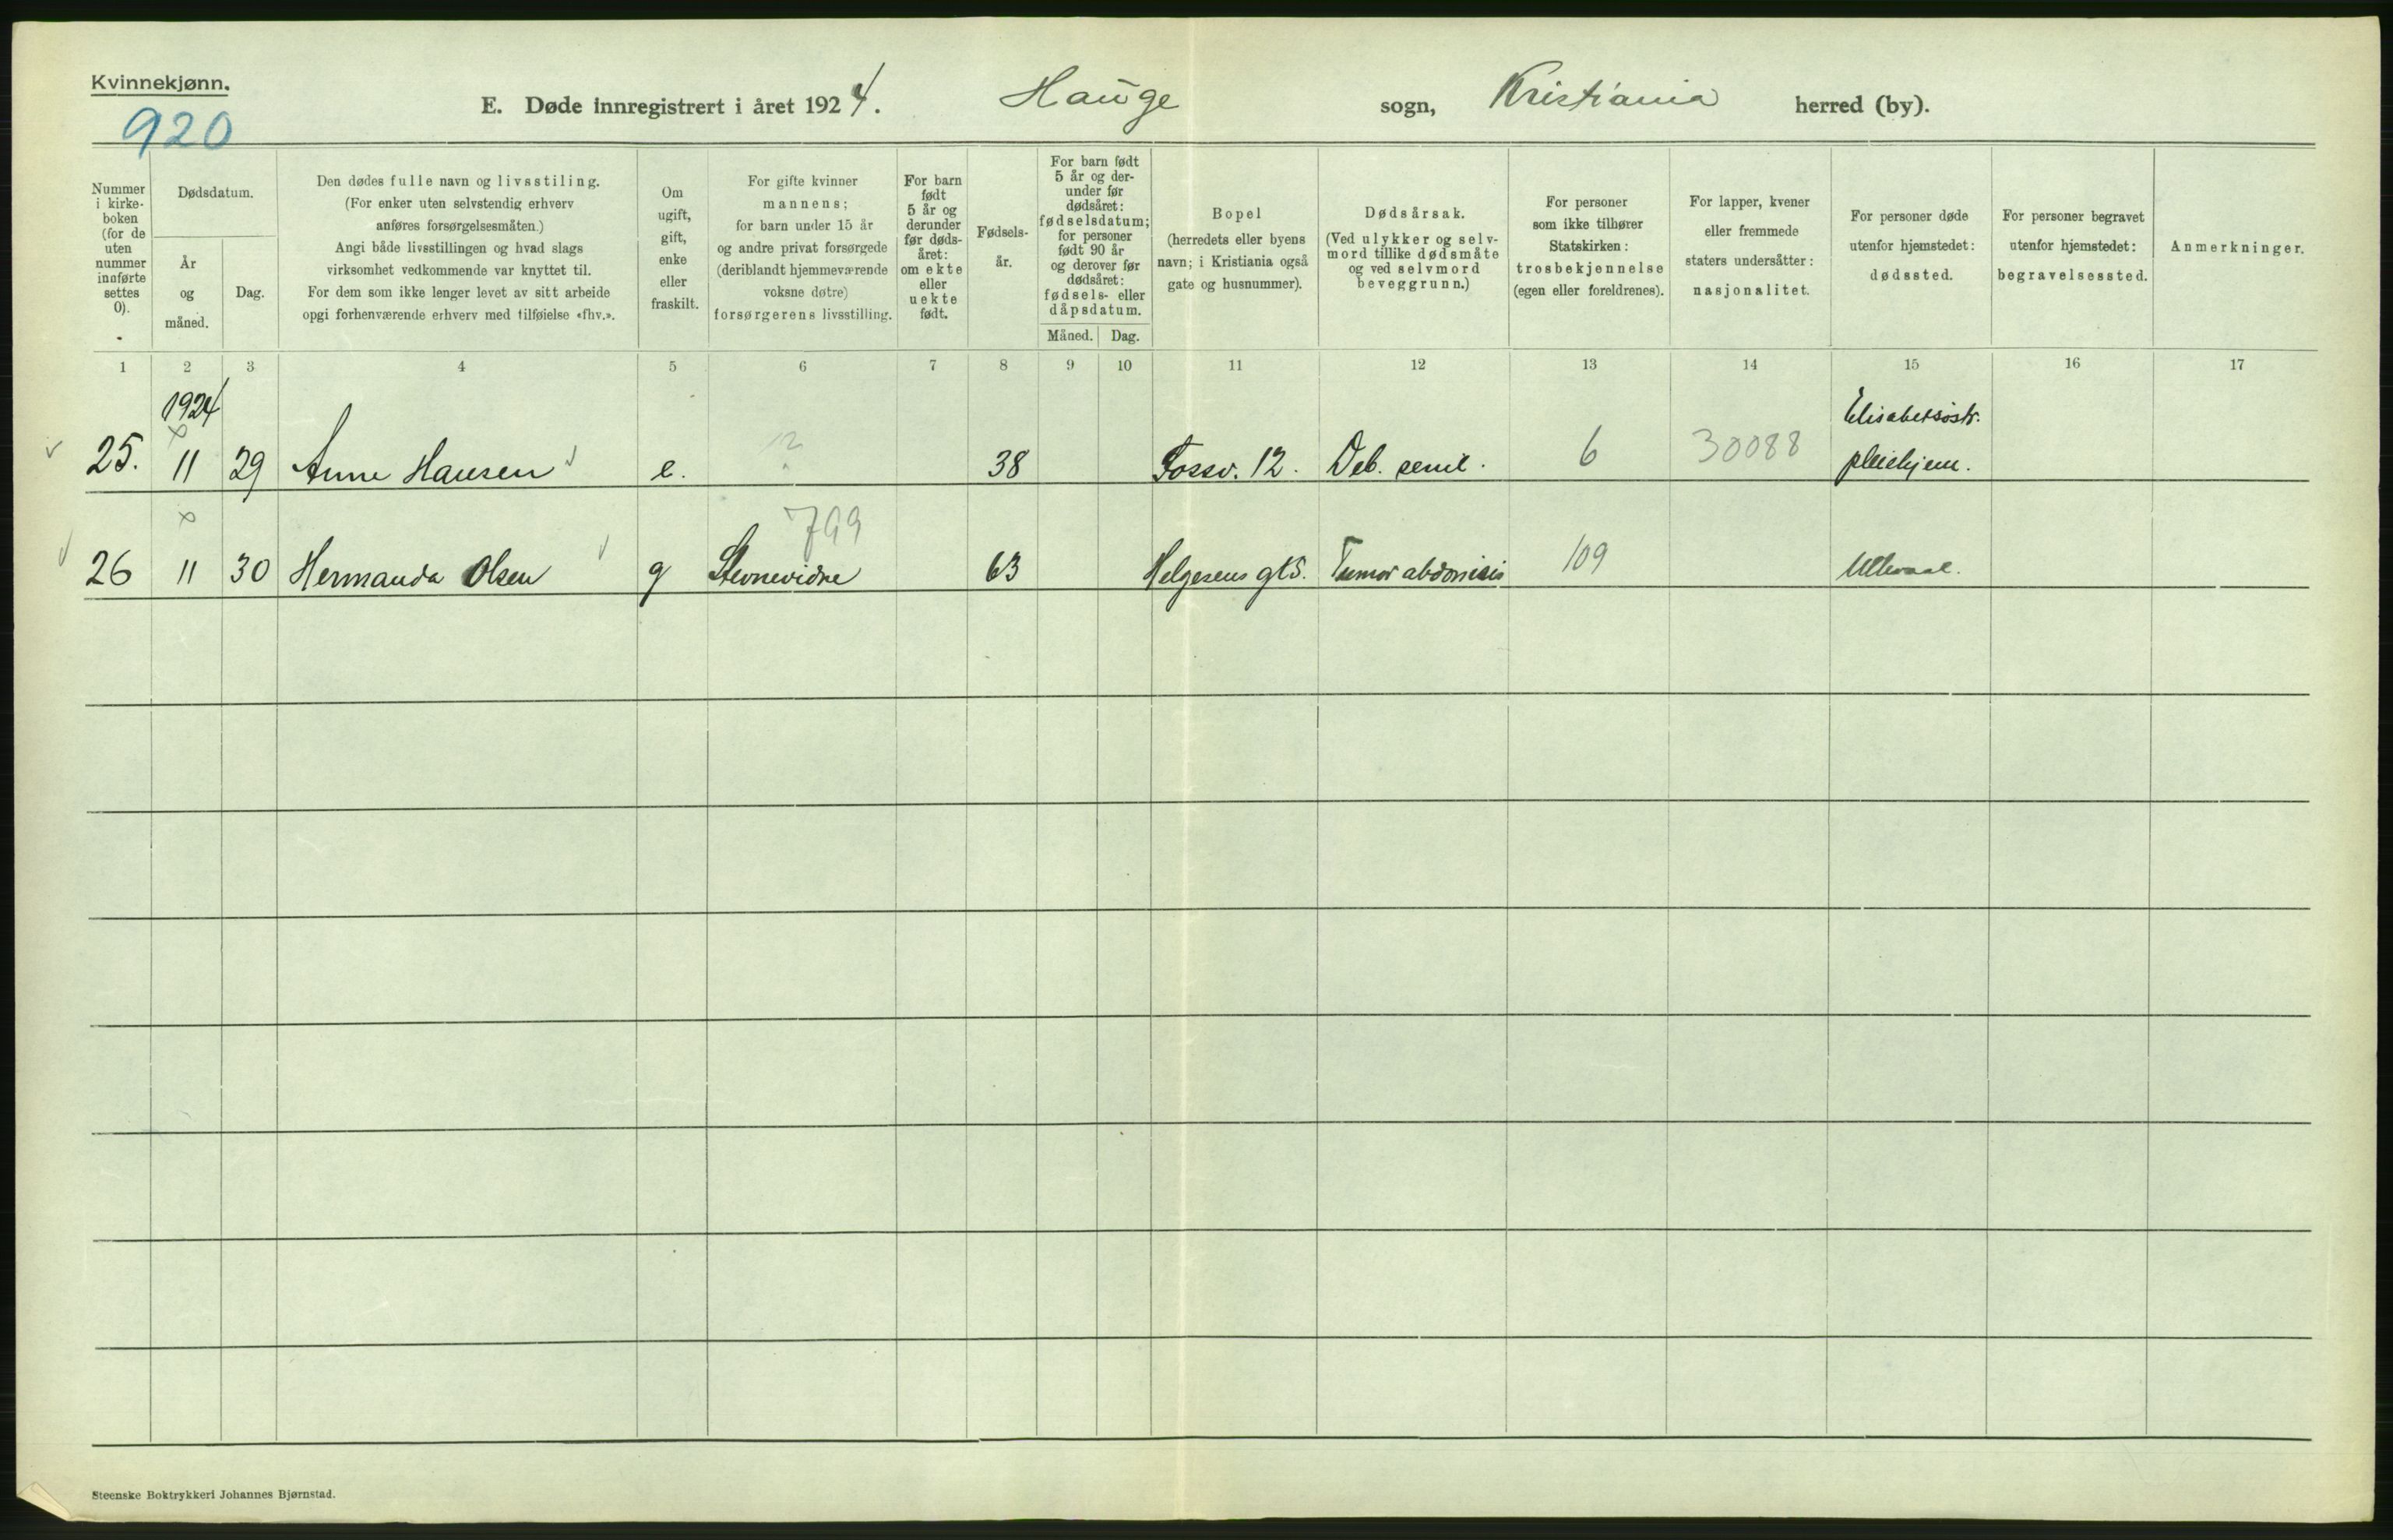 Kvinnekjønn.
920
E. Døde innregistrert i året 1924. Hauge sogn, Kristiania herred (by).
Nummer i kirke- boken (for de uten nummer innførte settes 0).
Dødsdatum.
År og måned.
Dag.
Den dødes fulle navn og livsstiling.
(For enker uten selvstendig erhverv
anføres forsørgelsesmåten.)
Angi både livsstillingen og hvad slags
virksomhet vedkommende var knyttet til.
For dem som ikke lenger levet av sitt arbeide
opgi forhenværende erhverv med tilføielse «fhv.».
Om
ugift,
gift,
enke
eller
fraskilt.
For gifte kvinner
mannens;
for barn under 15 år
og andre privat forsørgede
(deriblandt hjemmeværende
voksne døtre)
forsørgerens livsstilling.
For barn
født
5 år og
derunder
før døds-
året:
om ekte
eller
uekte
født.
Fødsels-
år.
For barn født
5 år og der-
under før
dødsåret:
fødselsdatum;
for personer
født 90 år
og derover før
dødsåret:
fødsels- eller
dåpsdatum.
Måned. Dag.
Bopel
(herredets eller byens
navn; i Kristiania også
gate og husnummer).
Dødsårsak.
(Ved ulykker og selv-
mord tillike dødsmåte
og ved selvmord
beveggrunn.)
For personer
som ikke tilhører
Statskirken:
trosbekjennelse
(egen eller foreldrenes).
For lapper, kvener
eller fremmede
staters undersåtter:
nasjonalitet.
For personer døde
utenfor hjemstedet:
dødssted.
For personer begravet
utenfor hjemstedet:
begravelsessted.
Anmerkninger.
1 2 3 4 5 6 7 8 9 10 11 12 13 14 15 16 17
1924
Elisabetsøstr.
25. 11 29 Anne Hansen e. ? 38 Fossv. 12. Deb. senil. 6 30088 pleiehjem.
799
26 11 30 Hermanda Olsen g Stevnevidne 63 Helgesens gt 5. Tumor abdominis 109 Ullevaal.
Steenske Boktrykkeri Johannes Bjørnstad.